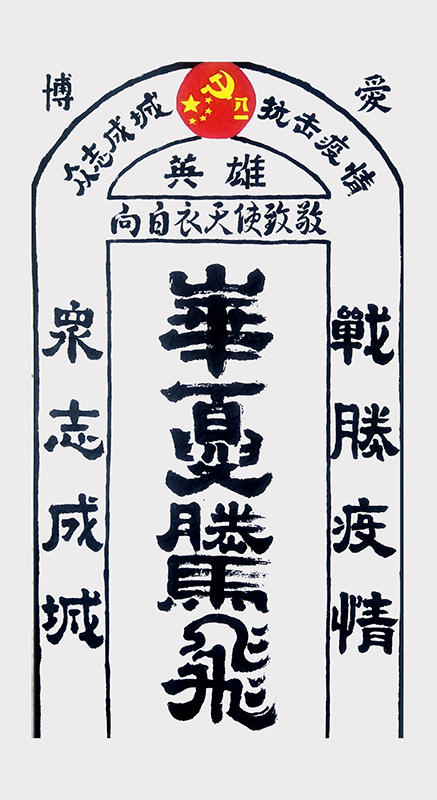 博 愛
众志成城 抗击疫情
八一
英雄
向白衣天使致敬
戰勝疫情
華夏騰飛
衆志成城